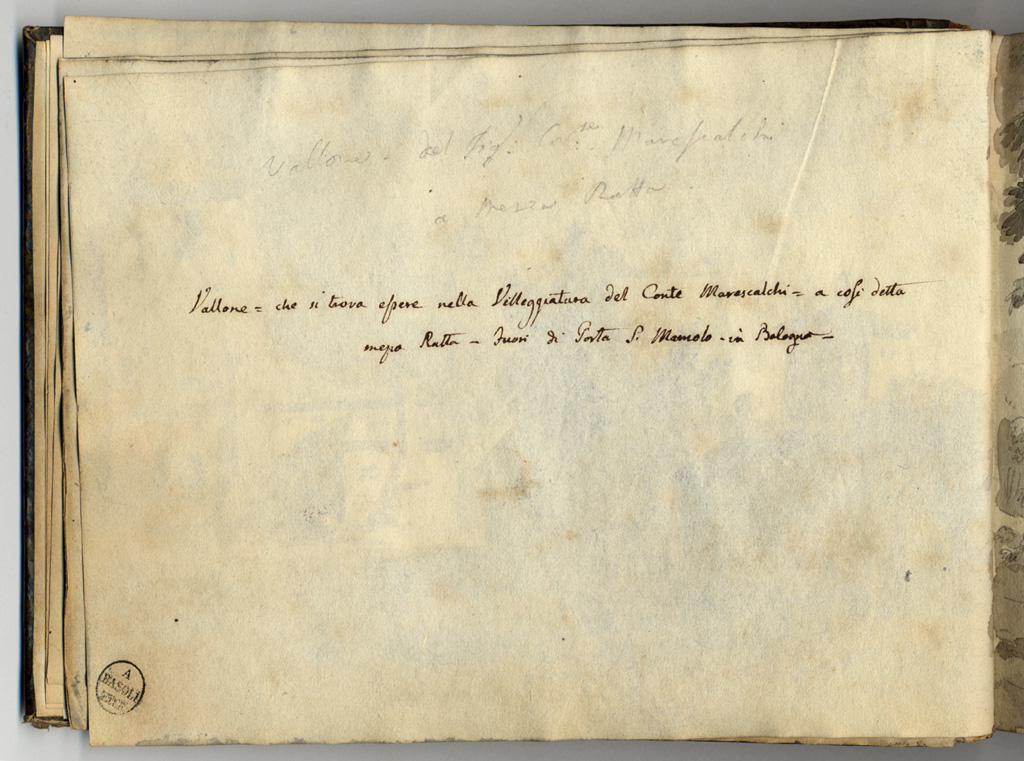 Vallone - del Sig.r Co.te Marescalchi
a Mezza Ratta
Vallone = che si trova essere nella Villeggiatura del Conte Marescalchi = a così detta
meza Ratta - fuori di Porta S. Mamolo - in Bologna -
A
BASOLI
FECE